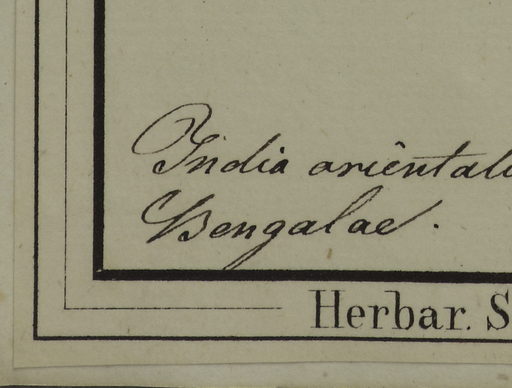 India oriêntali
Bengalae.
Herbar. S